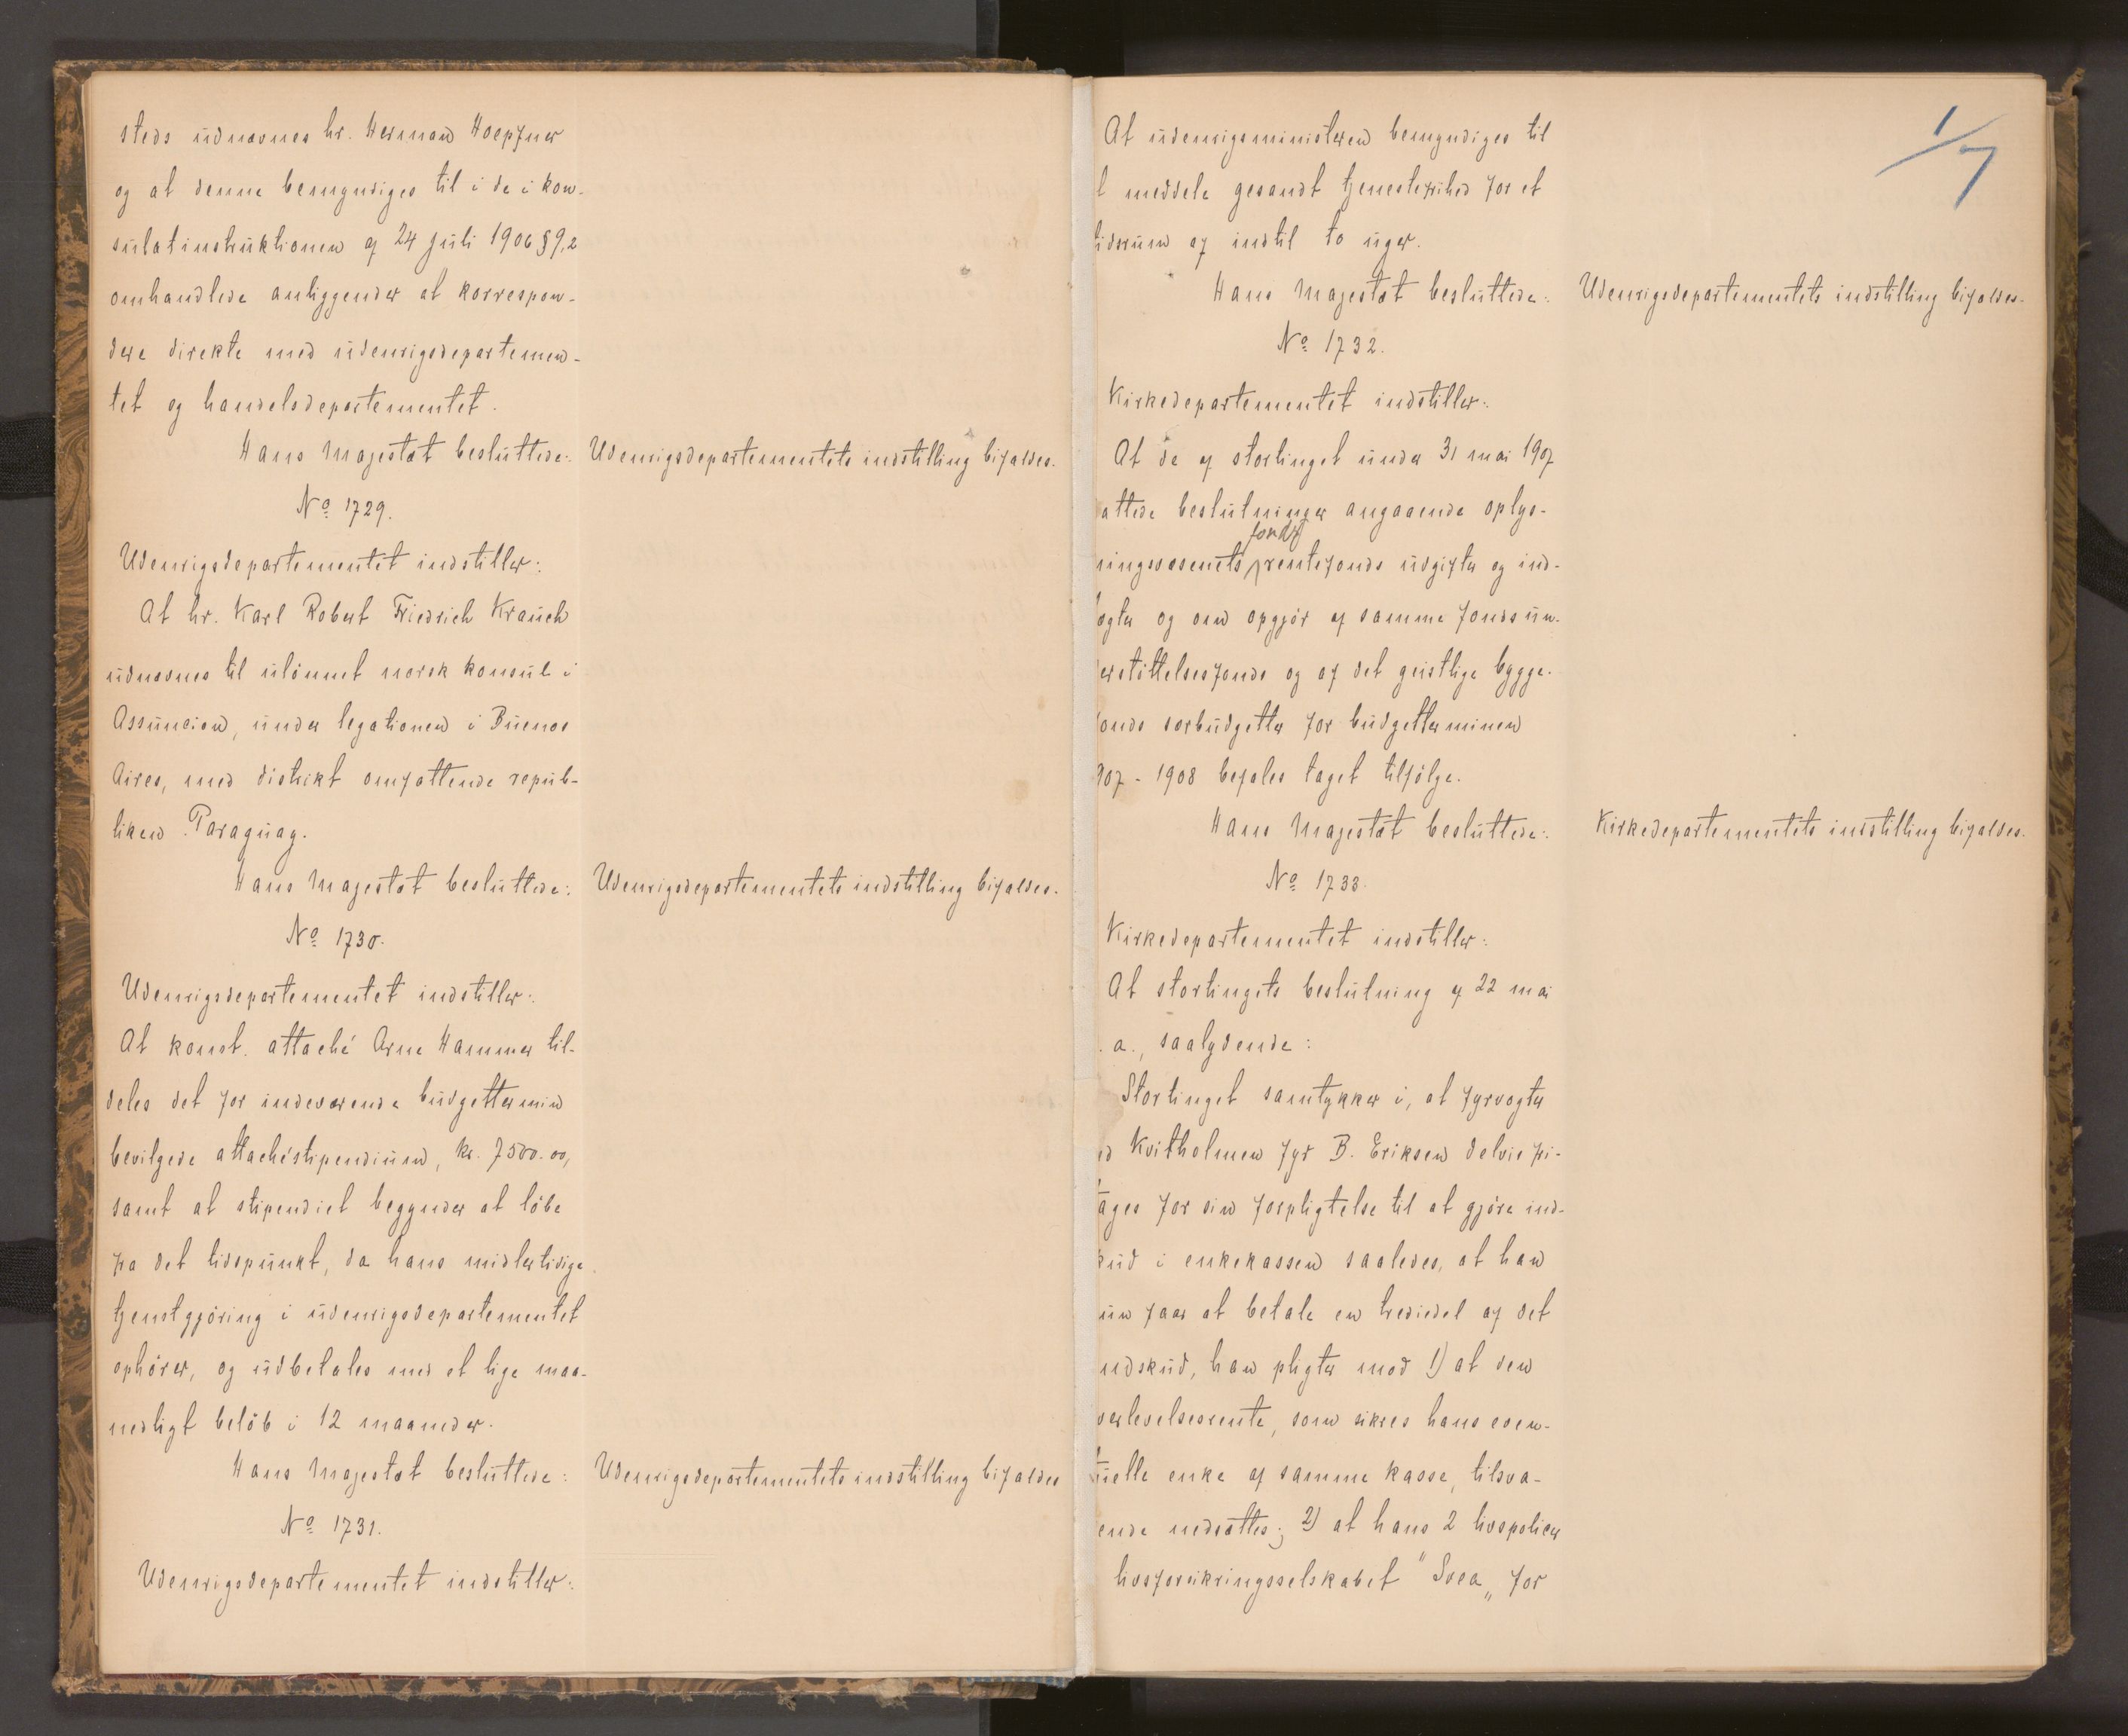 steds udnævnes hr. Herman Hoepfner
og at denne bemyndiges til i de i kon-
sulatinstruktionen af 24 juli 1906 § 9,2
omhandlede anliggender at korrespon-
dere direkte med udenrigsdepartemen-
tet og handelsdepartementet.
Hans Majestæt besluttede: Udenrigsdepartementets indstilling bifaldes.
No 1729.
Udenrigsdepartementet indstiller:
At hr. Karl Robert Friedrich Krauch
udnævnes til ulönnet norsk konsul i
Assuncion, under legationen i Buenos
Aires, med distrikt omfattende repub-
liken Paraguay.
Hans Majestæt besluttede: Udenrigsdepartementets indstilling bifaldes.
No 1730.
Udenrigsdepartementet indstiller:
At konst. attaché Arne Hammer til-
deles det for indeværende budgettermin
bevilgede attachéstipendium, kr. 7500.00,
samt at stipendiet begynder at löbe
fra det tidspunkt, da hans midlertidige
tjenstgjöring i udenrigsdepartementet
ophörer, og udbetales med et lige maa-
nedligt belöb i 12 maaneder.
Hans Majestæt besluttede: Udenrigsdepartementets indstilling bifaldes
No 1731.
Udenrigsdepartementet indstiller:
1/7
At udenrigsministeren bemyndiges til
t meddele gesandt tjenestefrihed for et
tidsrum af indtil to uger.
Hans Majestæt besluttede: Udenrigsdepartementets indstilling bifaldes.
No 1732.
Kirkedepartementet indstiller:
At de af stortinget under 31 mai 1907
attede beslutninger angaaende oplys-
fonds
ningsvæsenets rentefonds udgifter og ind-
tægter og om opgjör af samme fonds un-
erstöttelsesfonds og af det geistlige bygge-
fonds særbudgetter for budgetterminen
907 - 1908 befales taget tilfölge.
Hans Majestæt besluttede: Kirkedepartementets indstilling bifaldes.
No 1733.
Kirkedepartementet indstiller:
At stortingets beslutning af 22 mai
. a., saalydende:
Stortinget samtykker i, at fyrvogter
ed Kvitholmen fyr B. Eriksen delvis fri-
tages for sin forpligtelse til at gjöre ind-
kud i enkekassen saaledes, at han
un faar at betale en trediedel af det
ndskud, han pligter mod 1) at den
verlevelsesrente, som sikres hans even-
tuelle enke af samme kasse, tilsva-
ende nedsættes; 2) at hans 2 livspolicer
livsforsikringsselskabet "Svea„ for